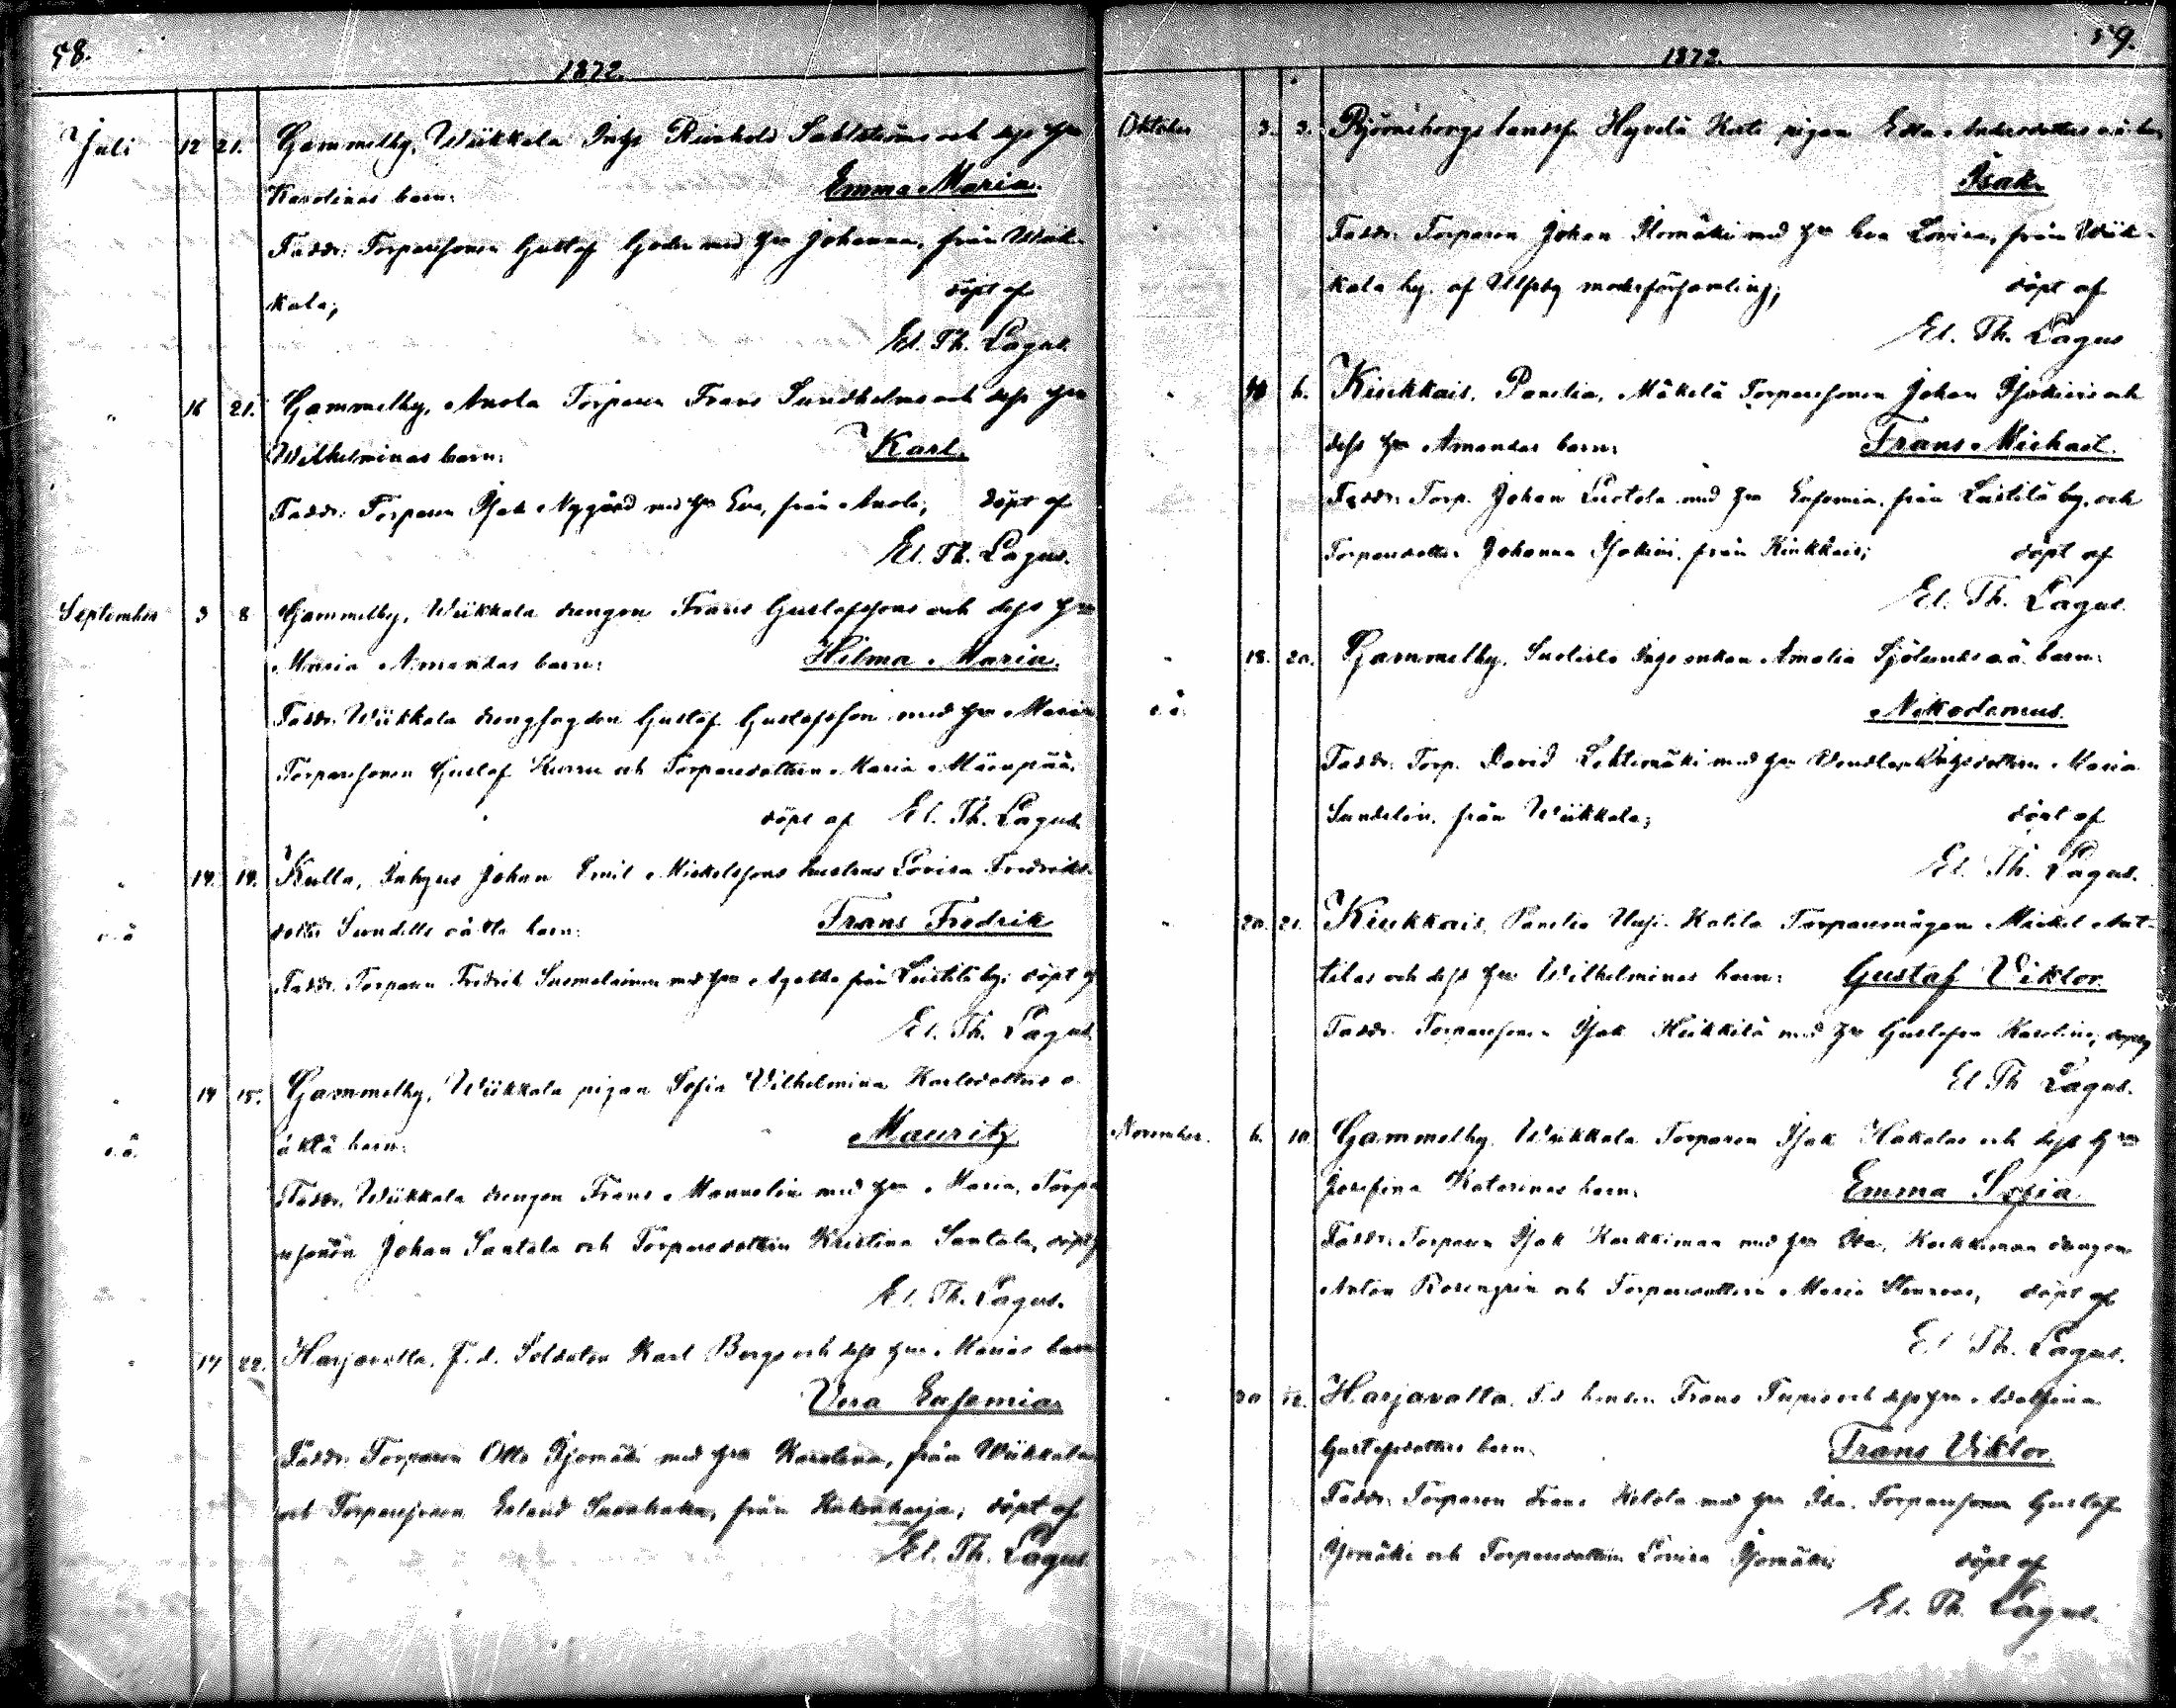 58.
1872.
Juli 12 21. Gammelby, Wiikkala Inhs Reinhold Sahlströms och dess hru
Karolinas barn: Emma Maria.
Faddr: Torparesonen Gustaf Goder med hru Johanna, från Wiik-
kala; döpt af
El. Th. Lagus.
" 16 21. Gammelby, Anola Torparen Frans Sundholms och dess hru
Wilhelminas barn: Karl.
Faddr: Torparen Isak Nygård med hru Eva, från Anola; döpt af
El. Th. Lagus.
September 3 8 Gammelby, Wiikkala drengen Frans Gustafssons och dess hru
Maria Amandas barn: Hilma Maria.
Faddr. Wiikkala drengfogden Gustaf Gustafsson med hru Maria
Torparesonen Gustaf Kurru och Torparedottren Maria Mäenpää;
döpt af El. Th. Lagus.
" 14. 14. Kulla, Inhyses Johan Emil Mickelssons hustrus Lovisa Fredriks-
o.ä dotter Sundells oäkta barn: Frans Fredrik
Faddr. Torparen Fredrik Suomalainen med hru Agatha från Leistilä by; döpt af
El. Th. Lagus
" 14 15. Gammelby, Wiikkala pigan Sofia Vilhelmina Karlsdotters o-
o.ä. äkta barn: Mauritz
Faddr. Wiikkala drengen Frans Mannelin med hru Maria, Torpa-
resonen Johan Santala och Torparedottren Kristina Santala, döpt af
El. Th. Lagus.
" 17 22. Harjavalta, F.d. Soldaten Karl Bergs och dess hru Marias barn
Vera Eufemia
Faddr. Torparen Otto Ojomäki med hru Karolina, från Wiikkala
och Torparesonen Erland Savohaka, från Kukonharja; döpt af
El. Th. Lagus
59.
1872.
Oktober 3. 3. Björneborgs landsfn Hyvelä Kati pigan Edla Andersdotters o.ä. barn
Isak.
Faddr. Torparen Johan Ilomäki med hru Eva Lovisa, från Wiik-
kala by. af Ulfsby moderförsamling; döpt af
El. Th. Lagus
" 6. Kiukkais, Panelia, Mäkelä Torparesonen Johan Isokiwis och
dess hru Amandas barn: Frans Michael.
Faddr. Torp. Johan Luotola med hru Eufemia, från Leistilä by, och
Torparedotter Johanna Isokiwi, från Kiukkais; döpt af
El. Th. Lagus.
" 18. 20. Gammelby, Inhs enkan Amalia Sjölunds o.ä. barn:
o.ä. Nikodemus.
Faddr. Torp. David Lehtimäki med hru Vendla, Inhysesdottren Maria
Sundelin, från Wiikkala; döpt af
El. Th. Lagus.
" 20. 21. Kiukkais, Panelia Uusi-Katila Torparemågen Mickel Ant-
tilas och dess hru Wilhelminas barn: Gustaf Viktor.
Faddr. Torparesonen Isak Heikkilä med hru Gustafva Karolina; döpt af
El. Th Lagus.
November. 6. 10. Gammelby, Wiikkala Torparen Isak Hakalas och dess hru
Josefina Katarinas barn: Emma Sofia.
Faddr. Torparen Isak Korkkiman med hru Eva, Korkkiman drengen
Anton Rosengrén och Torparedottren Maria Stenroos, döpt af
El. Th. Lagus.
" 30 Harjavalta, F.d. Frans och dess hru Adolfina
Gustafsdotters barn: Frans Viktor.
Faddr. Torparen Frans Kelola med hru Ida, Torparesonen Gustaf
Ojomäki och Torparedottren Lovisa Ojomäki; döpt af
El. Th. Lagus.